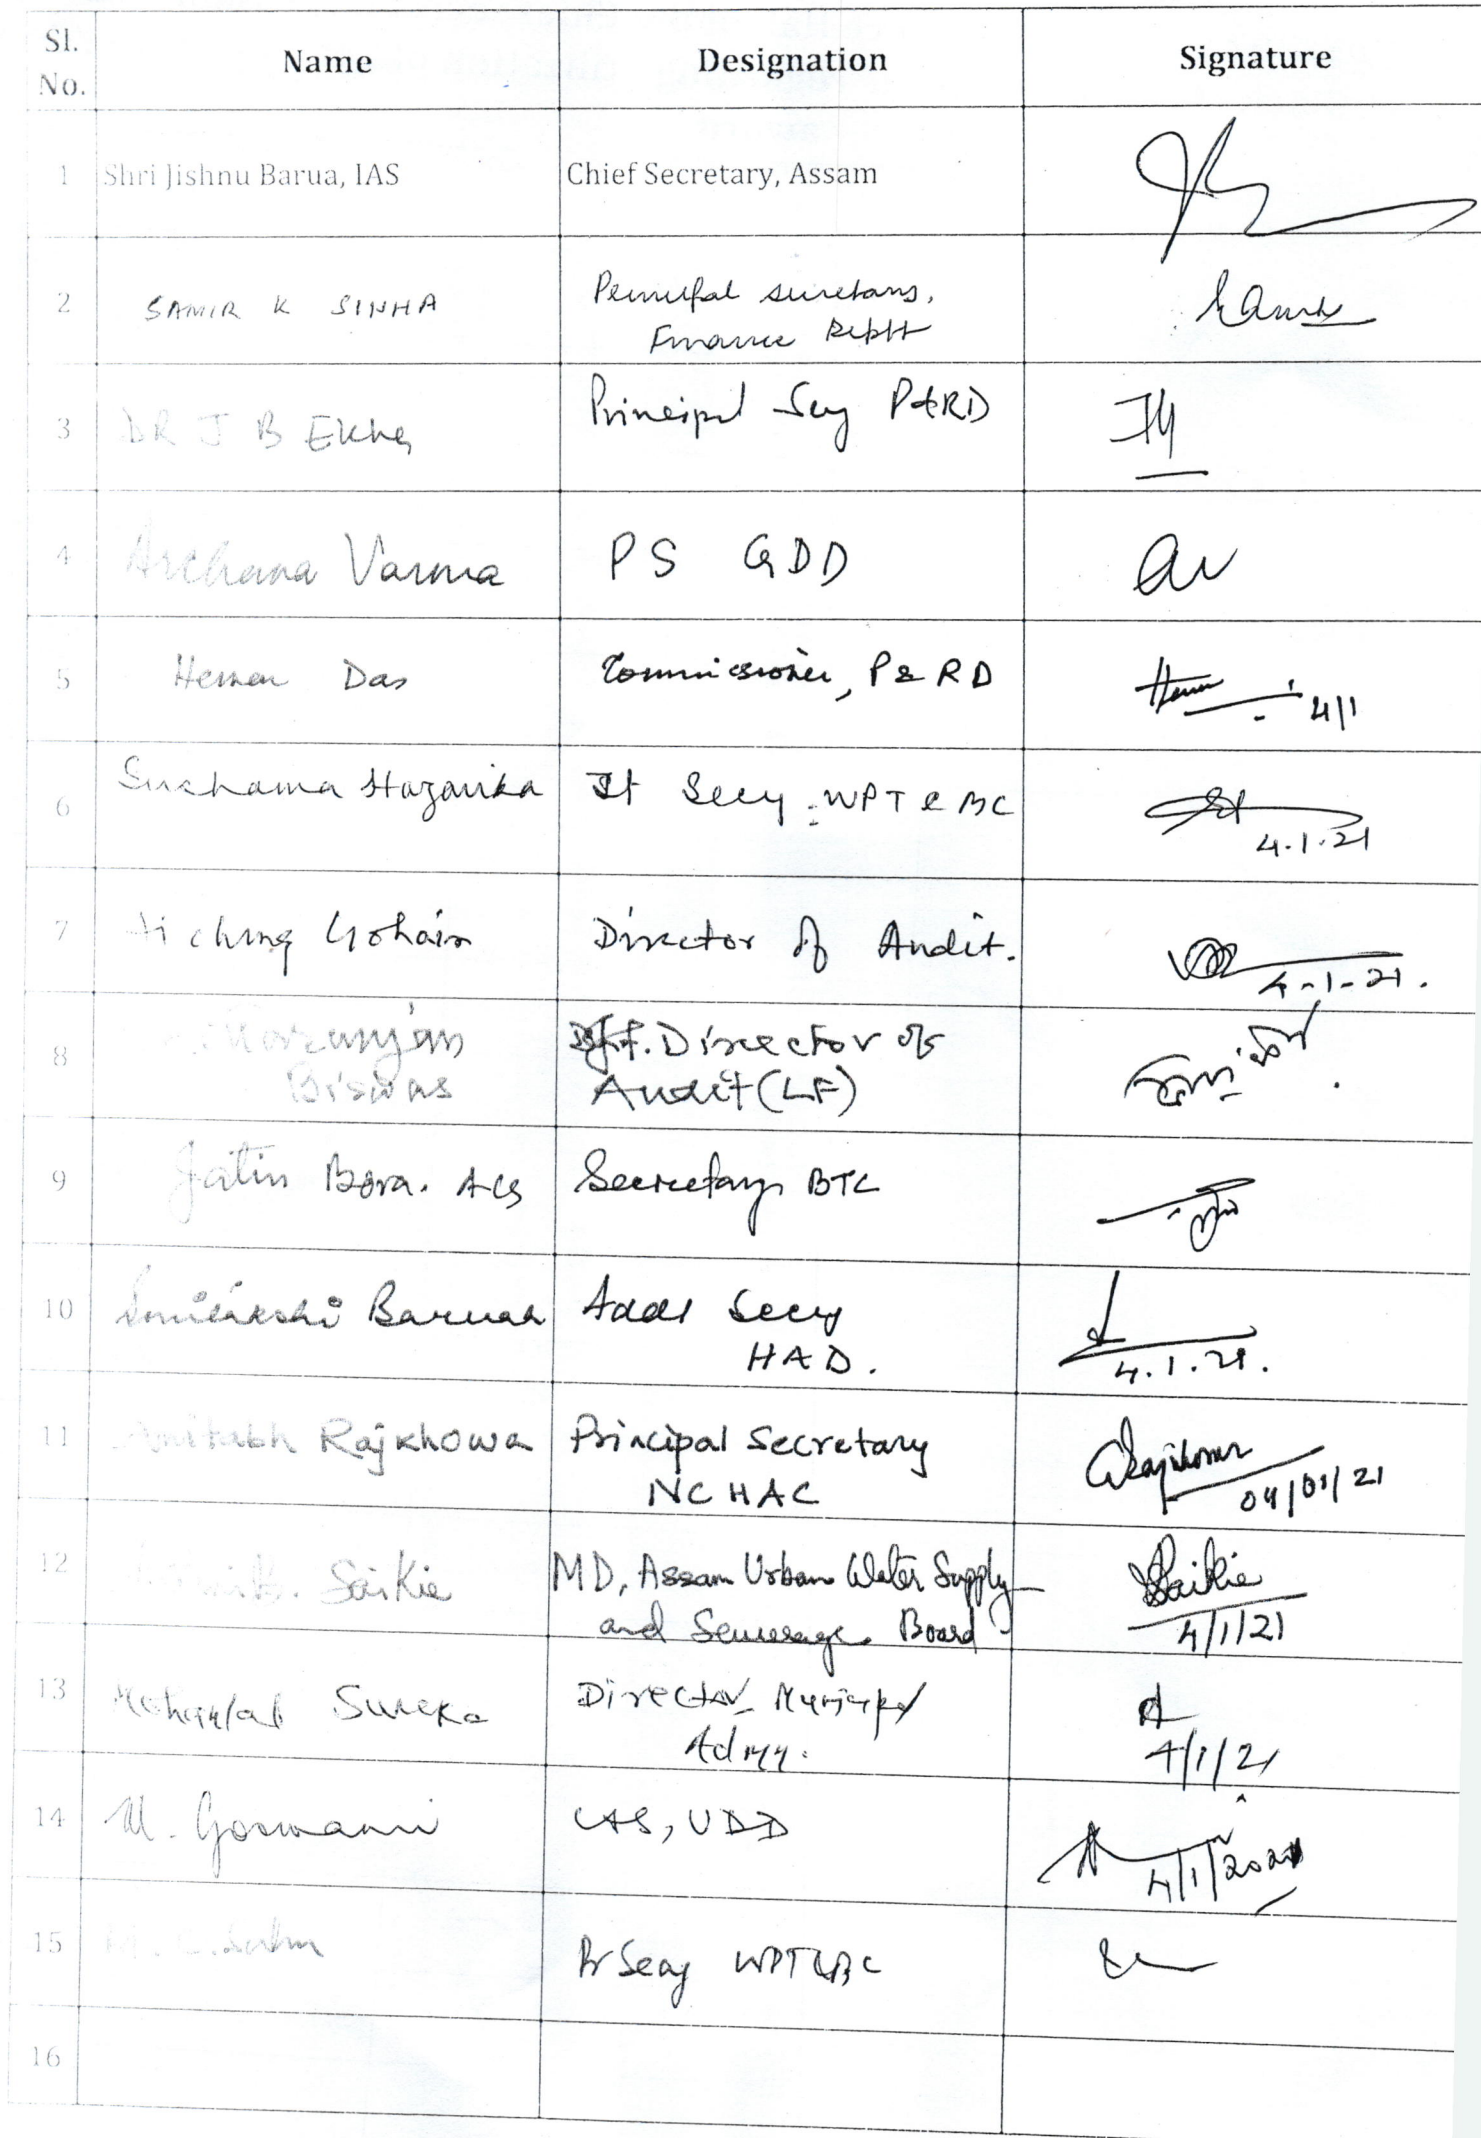 Sl. No. Name Designation Signature
1 Shri Jishnu Barua, IAS Chief Secretary, Assam
2 SAMIR K SINHA Principal Secretary,
Finance Deptt
3 DR J B Ekka Principal Secy P&RD
4 Archana Varma PS GDD
5 Hemen Das Commissioner, P&RD 4/1
6 Sushama Hazarika Jt Secy WPT & BC
4.1.21
7 Aiching Gohain Director of Audit.
4-1-21.
8 Director of
Biswas Audit (LF)
9 Jatin Bora. ACS Secretary BTC
10 Baruah Addl Secy
HAD.
4.1.21.
11 Rajkhowa Principal Secretary
NCHAC
04/01/21
12 Saikia MD, Assam Urban Water Supply
and Sewerage Board
Saikia
4/1/21
13 Sureka Director Municipal
Admn.
4/1/21
14 M. Goswami UDD
4/1/2021
15 Pr Secy WPT&BC
16